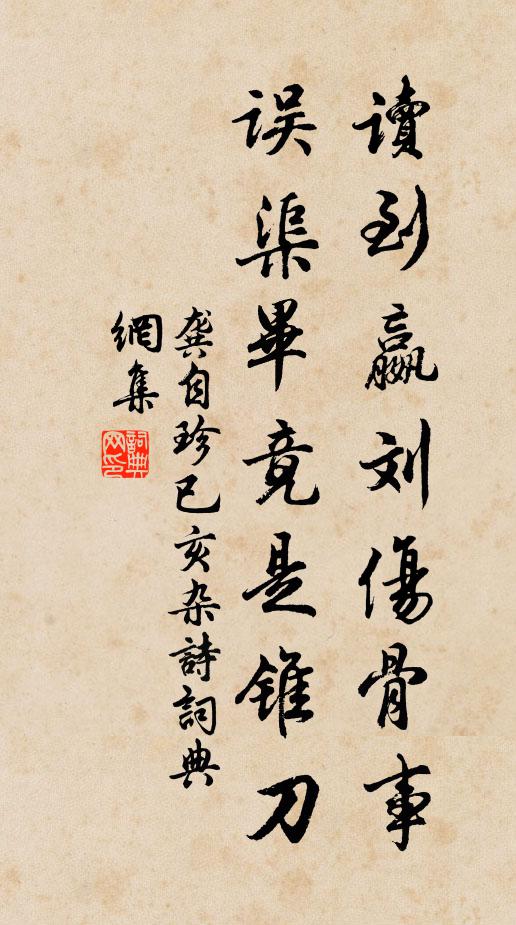 读到嬴刘傷骨事
误渠畢竟是錐刀
龔自珍己亥杂詩詞典
網集
詞典
网印